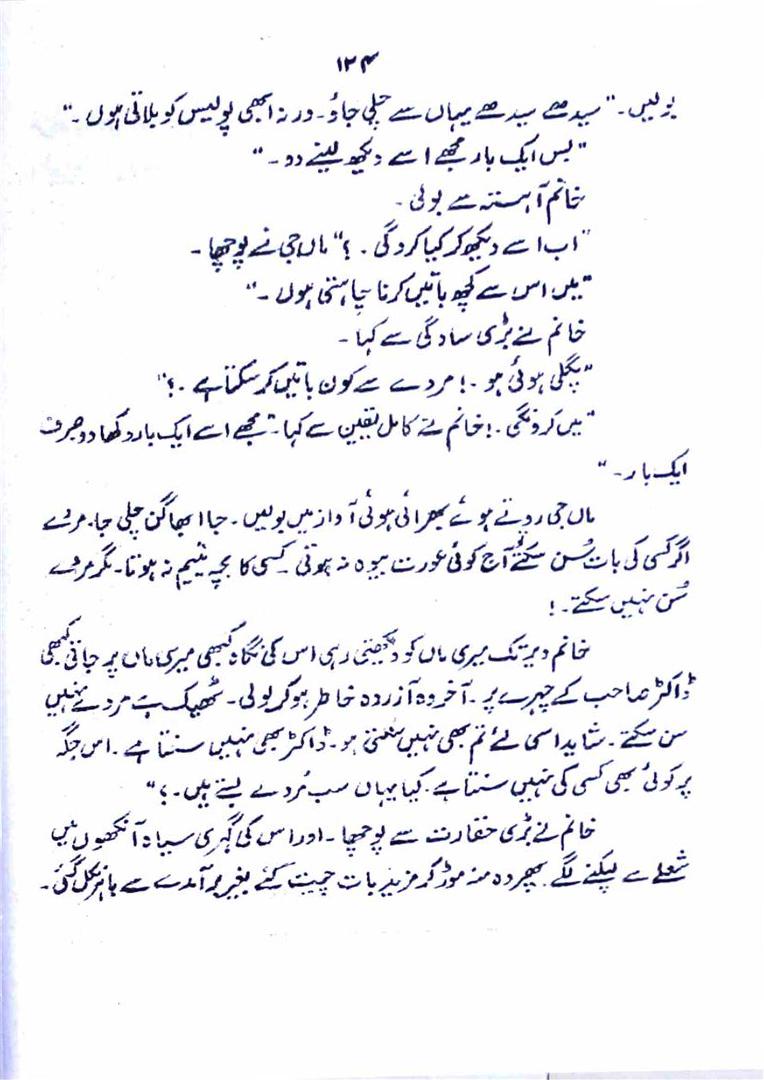 ۱۲۴
بولیں۔ "سیدھے سیدھے یہاں سے چلی جاؤ۔ ورنہ ابھی پولیس کو بلاتی ہوں۔"
"بس ایک بار مجھے اسے دیکھ لینے دو۔"
خانم آہستہ سے بولی۔
"اب اسے دیکھ کر کیا کروگی۔؟" ماں جی نے پوچھا۔
"میں اس سے کچھ باتیں کرنا چاہتی ہوں۔"
خانم نے بڑی سادگی سے کہا۔
"پگلی ہوئی ہو۔! مردے سے کون باتیں کر سکتا ہے۔؟"
"میں کرونگی۔! خانم نے کامل یقین سے کہا۔ "مجھے اسے ایک بار دکھا دو صرف
ایک بار۔"
ماں جی روتے ہوئے بھرائی ہوئی آواز میں بولیں۔ جا ابھاگن چلی جا۔ مردے
اگر کسی کی بات سُن سکتے تو آج کوئی عورت بیوہ نہ ہوتی۔ کسی کا بچہ یتیم نہ ہوتا۔ مگر مردے
سُن نہیں سکتے۔!
خانم دیر تک میری ماں کو دیکھتی رہی اس کی نگاہ کبھی میری ماں پر جاتی کبھی
ڈاکٹر صاحب کے چہرے پر۔ آخر وہ آزردہ خاطر ہو کر بولی۔ ٹھیک ہے مردے نہیں
سن سکتے۔ شاید اسی لئے تم بھی نہیں سنتی ہو۔ ڈاکٹر بھی نہیں سنتا ہے۔ اس جگہ
پر کوئی بھی کسی کی نہیں سنتا ہے۔ کیا یہاں سب مُردے بستے ہیں۔؟"
خانم نے بڑی حقارت سے پوچھا۔ اور اس کی گہری سیاہ آنکھوں میں
شعلے سے لپکنے لگے۔ پھر وہ منہ موڑ کر مزید بات چیت کئے بغیر برآمدے سے باہر نکل گئی۔